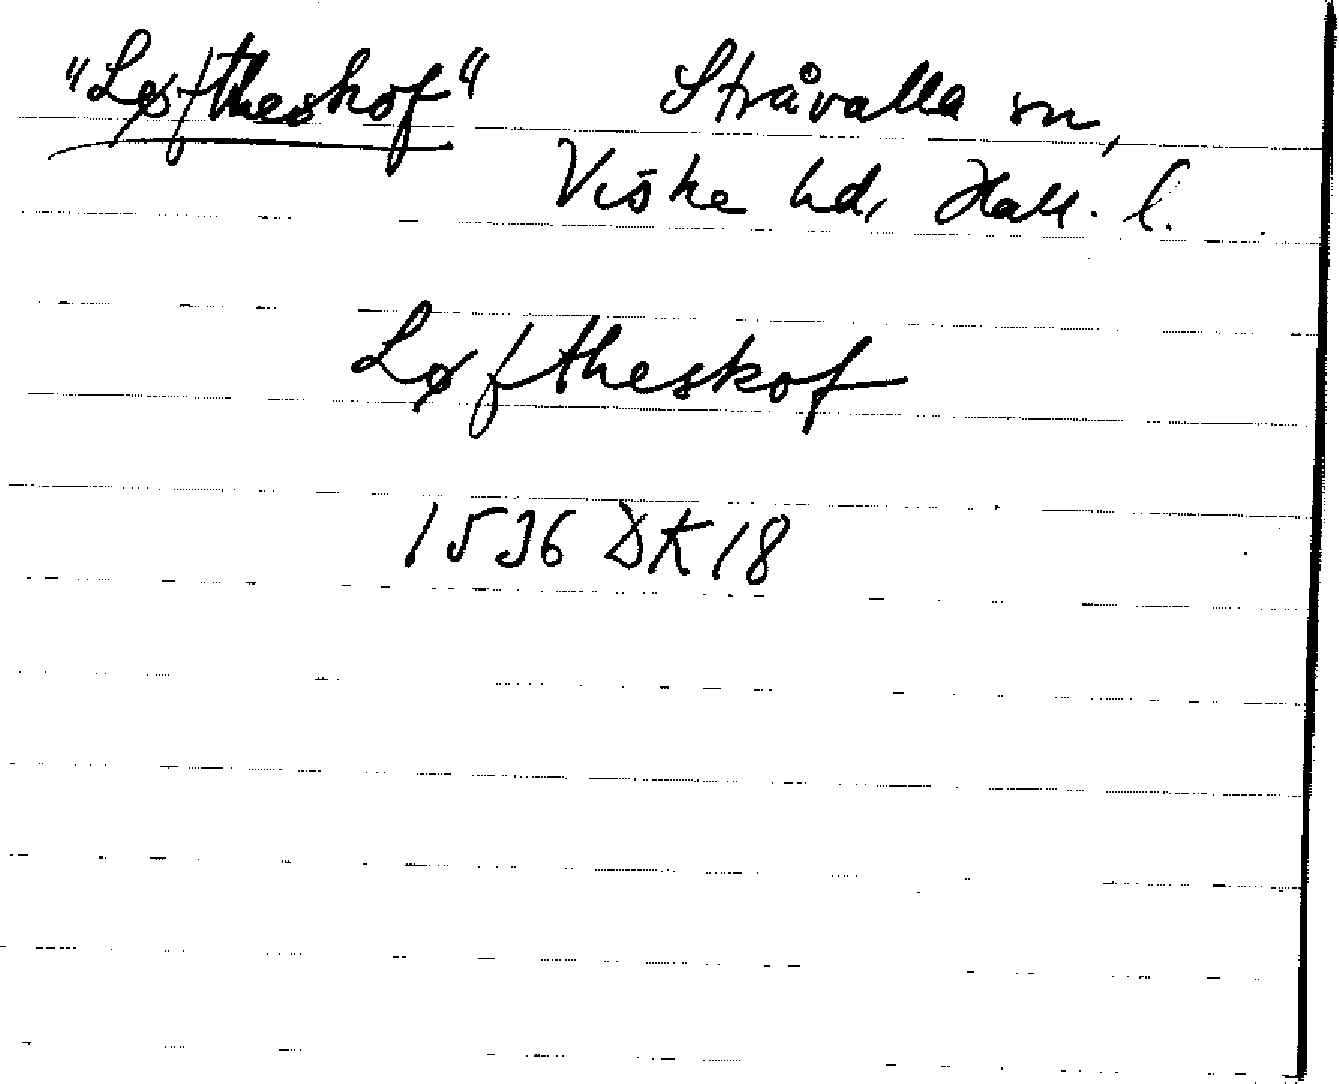 "Løftheskof" Stråvalla sn,
Viske hd, Hall. l.
Løftheskof
1536 DK 18